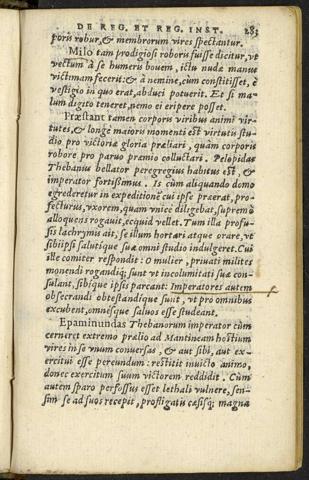 DE REG. ET REG. INST. 283
poris robur, & membrorum vires spectantur.
Milo tam prodigiosi roboris fuisse dicitur, vt
vectum à se humeris bouem, ictu nudæ manus
victimam fecerit: & à nemine, cùm constitisset, è
vestigio in quo erat, abduci potuerit. Et si ma
lum digito teneret, nemo ei eripere posset.
Præstant tamen corporis viribus animi vir-
tutes, & longè maioris momenti est virtutis stu-
dio pro victoriæ gloria præliari, quàm corporis
robore pro paruo præmio colluctari. Pelopidas
Thebanus bellator peregregius habitus est, &
imperator fortissimus. Is cùm aliquando domo
egrederetur in expeditionē cui ipse præerat, pro-
fecturus, vxorem, quam vnicè diligebat, supremò
alloquens rogauit, ecquid vellet. Tum illa profu-
sis lachrymis ait, se illum hortari atque orare, vt
sibiipsi salutique suæ omni studio indulgeret. Cui
ille comiter respondit: O mulier, priuati milites
monendi rogandiq; sunt vt incolumitati suæ con-
sulant, sibique ipsis parcant: Imperatores autem
obsecrandi obtestandique sunt, vt pro omnibus
excubent, omnesque saluos esse studeant.
Epaminundas Thebanorum imperator cùm
cerneret extremo prælio ad Mantineam hostium
vires in se vnum conuersas, & aut sibi, aut ex-
ercitui esse pereundum: restitit inuicto animo,
donec exercitum suum victorem reddidit. Cùm
autem sparo perfossus esset lethali vulnere, sen-
sim se ad suos recepit, profligatis cæsisq; magna